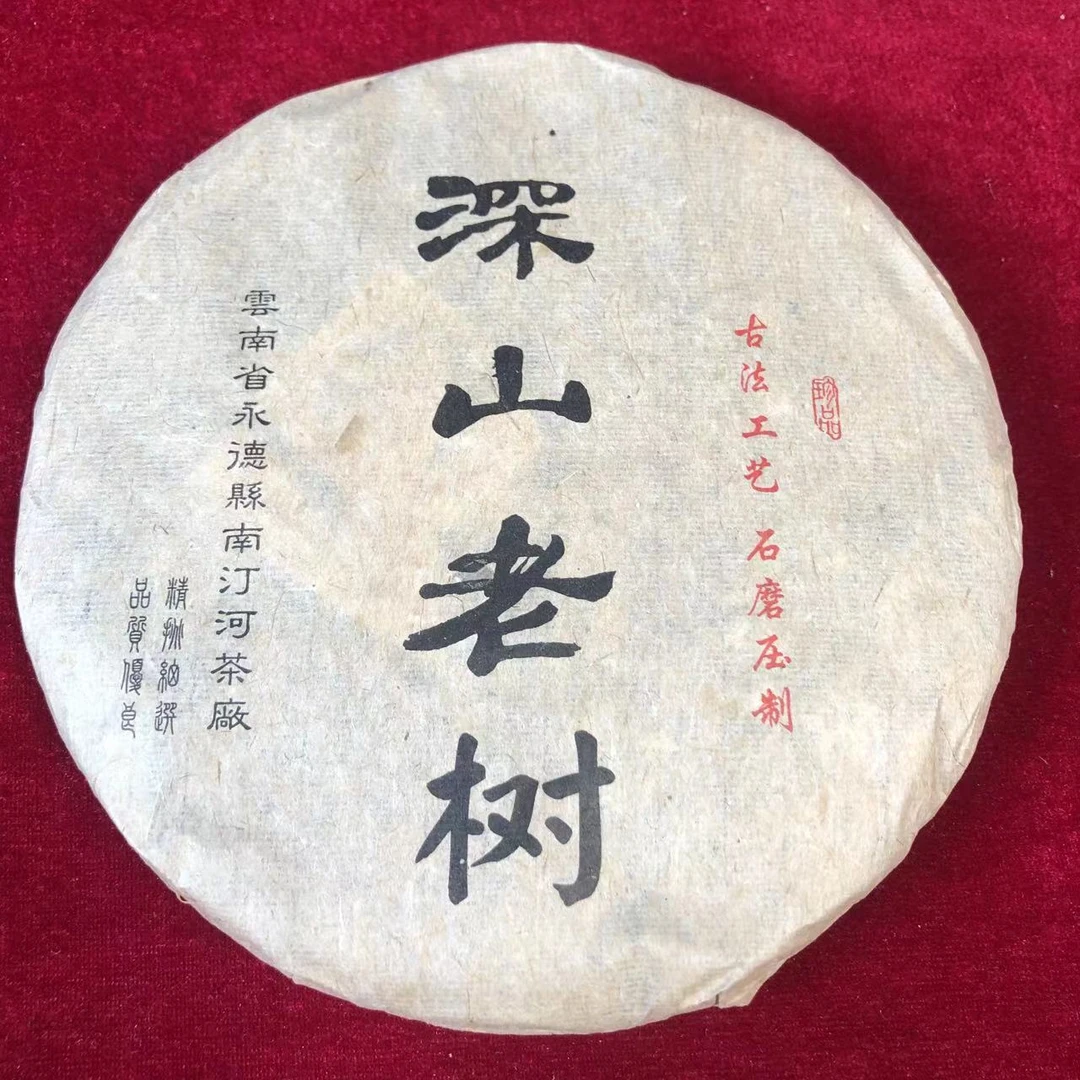 珍品
古法工艺 石磨压制
深山老树
雲南省永德縣南汀河茶廠
精挑細選
品質優良